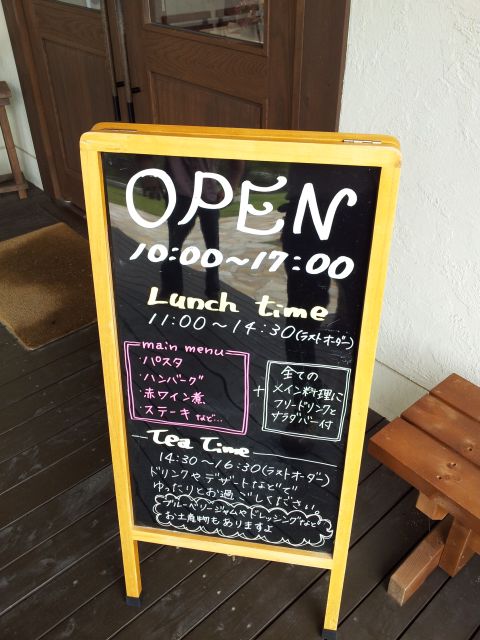 OPEN
10:00～17:00
Lunch time
11:00～14:30(ラストオーダー)
main menu
・パスタ
・ハンバーグ
・赤ワイン煮
・ステーキ など…
+
全ての
メイン料理に
フリードリンクと
サラダバー付
Tea Time
14:30～16:30(ラストオーダー)
ドリンクやデザートなどで
ゆったりとお過ごしください。
ブルーベリージャムやドレッシングなど
お土産物もありますよ